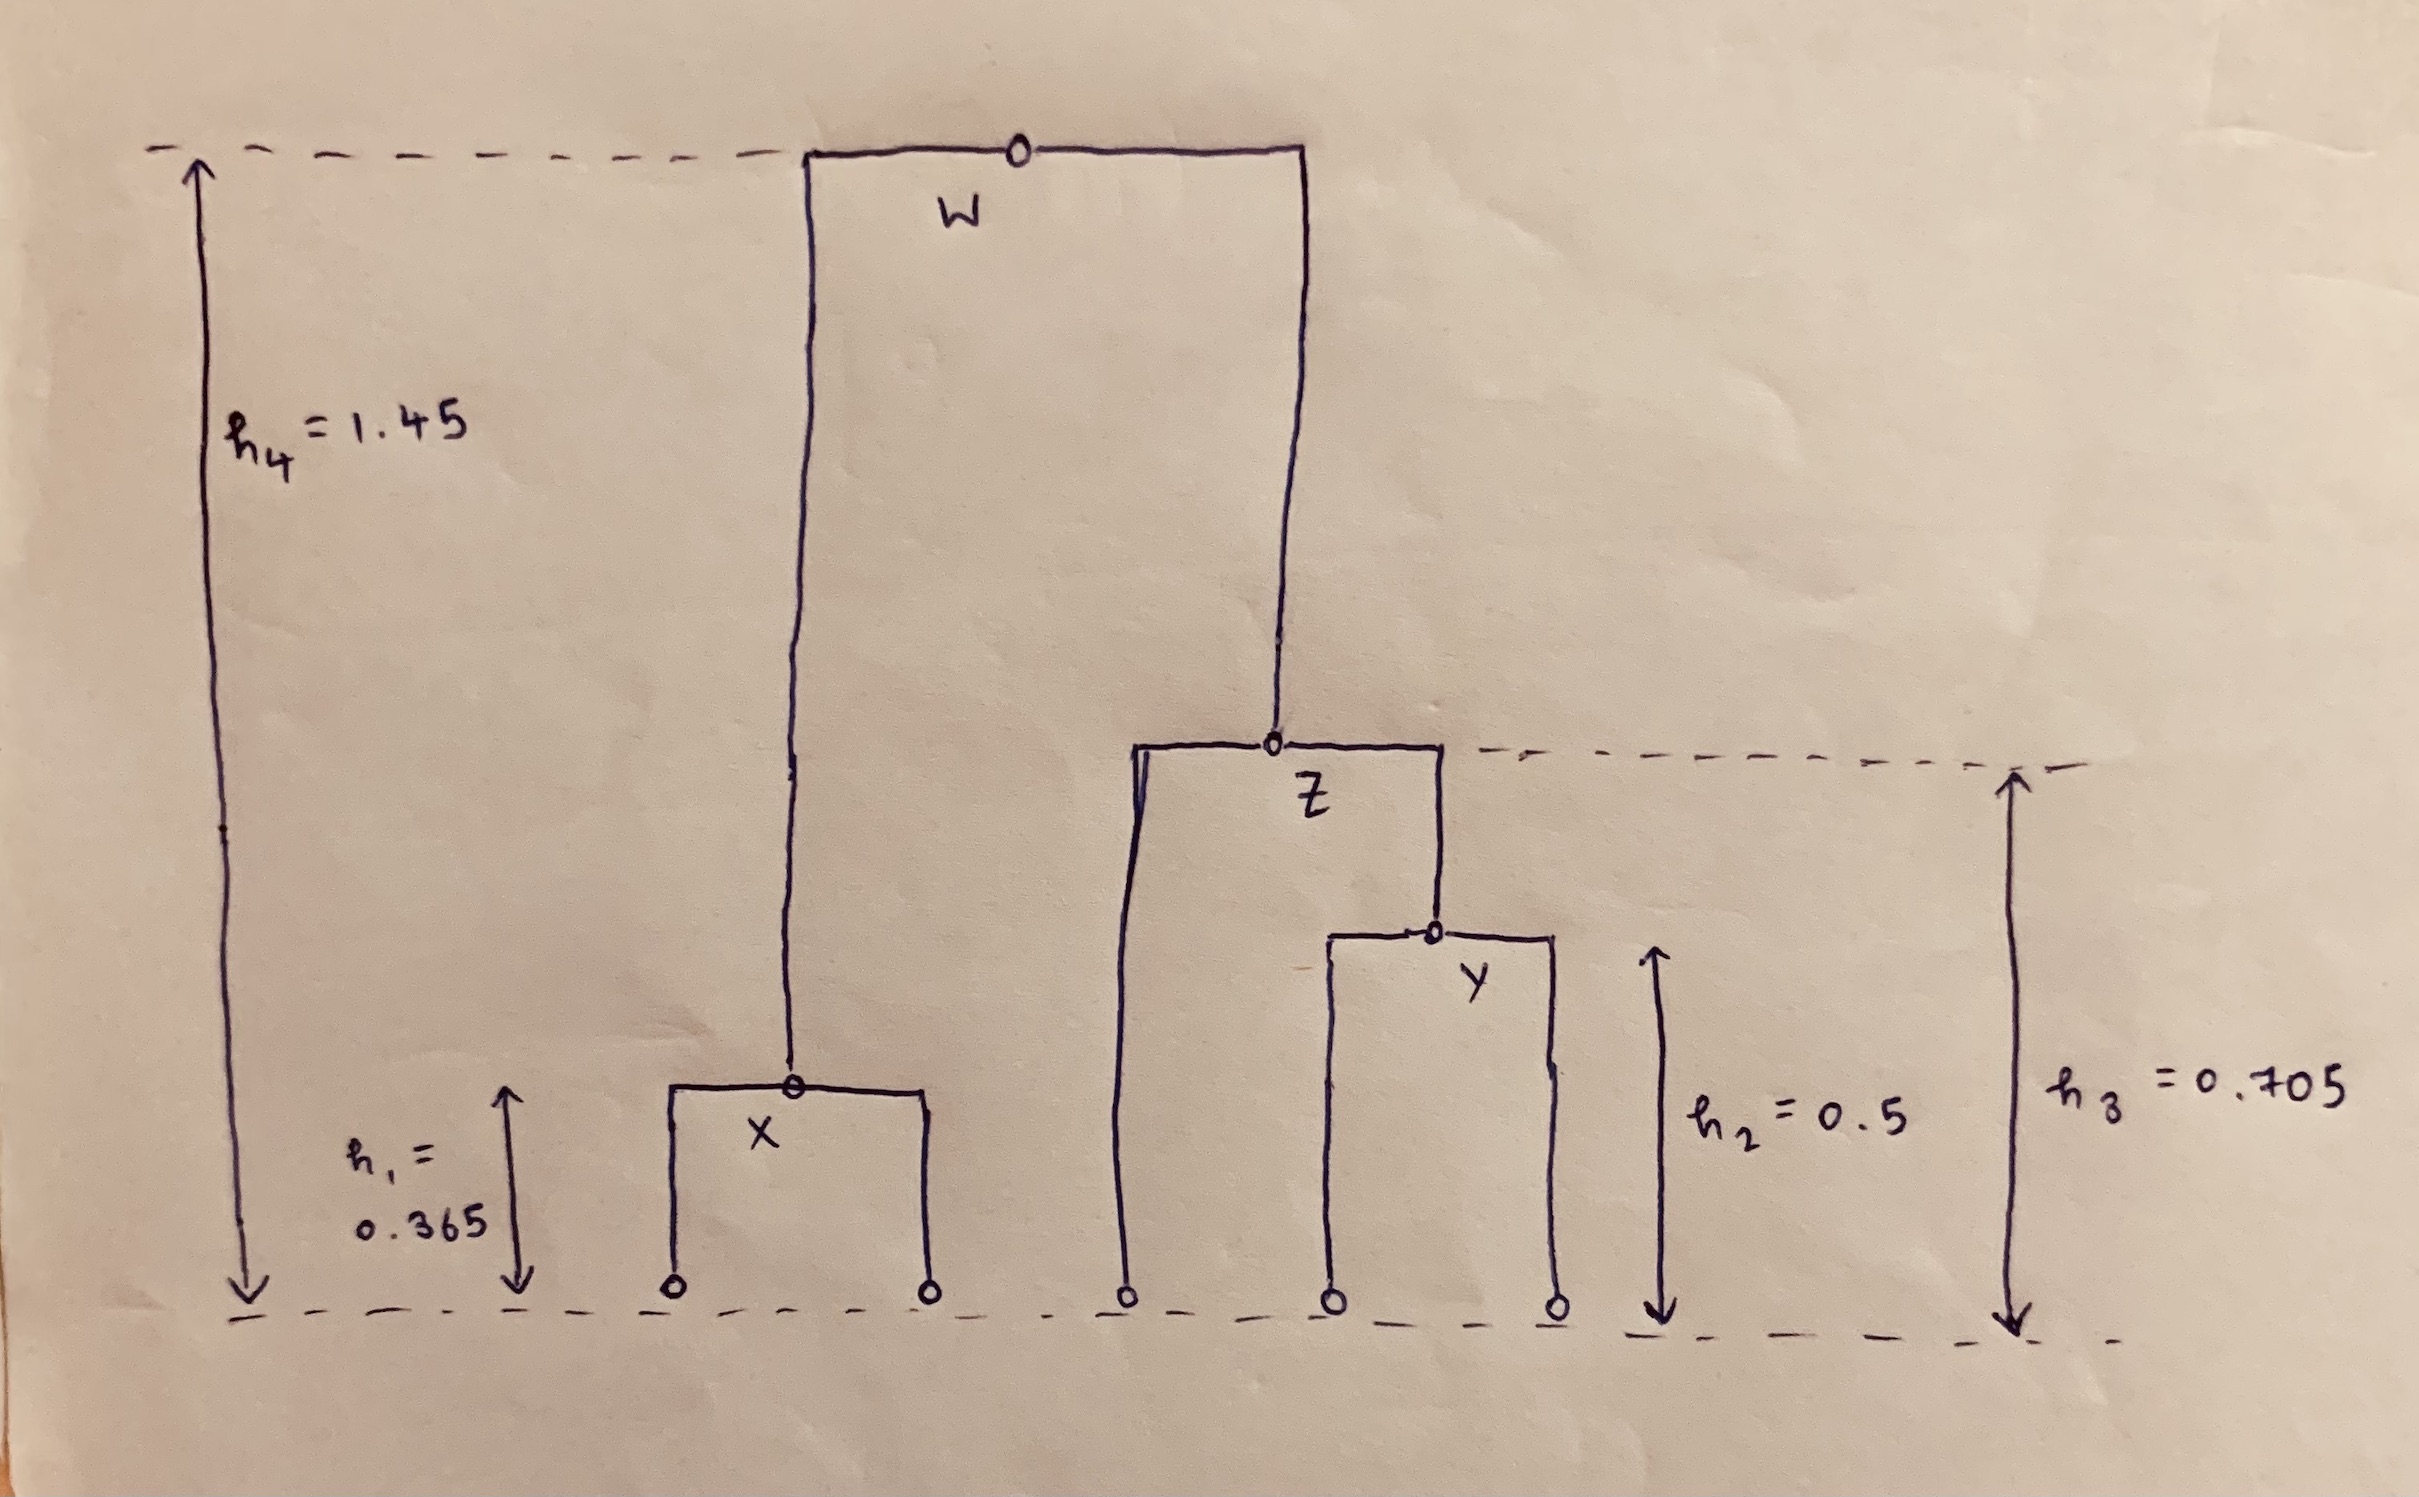 W
h₄ = 1.45
Z
Y
X
h₁ =
0.365
h₂ = 0.5
h₃ = 0.705